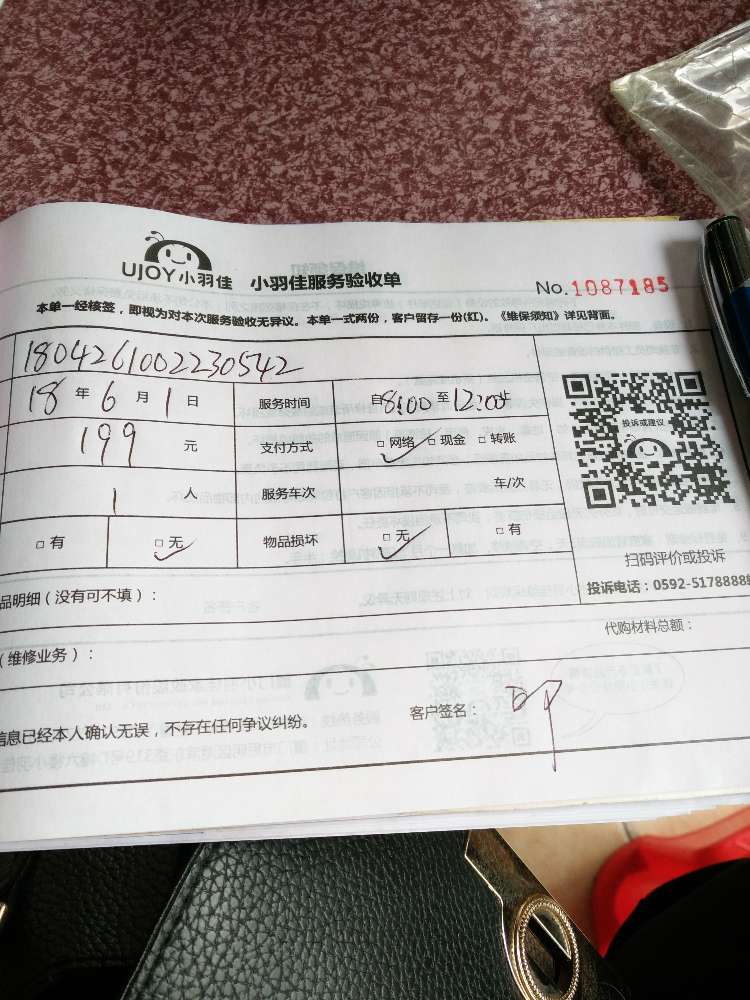 UJOY小羽佳 小羽佳服务验收单
No.1087185
本单一经核签，即视为对本次服务验收无异议。本单一式两份，客户留存一份(红)。《维保须知》详见背面。
1804261002230542
18年6月1日 服务时间 自8:00至12:00止
199元 支付方式 □网络 □现金 □转账
投诉或建议
1人 服务车次 车/次
□有 □无 物品损坏 □无 □有
扫码评价或投诉
投诉电话：0592-5178888
品明细（没有可不填）：
代购材料总额：
（维修业务）：
信息已经本人确认无误，不存在任何争议纠纷。 客户签名：